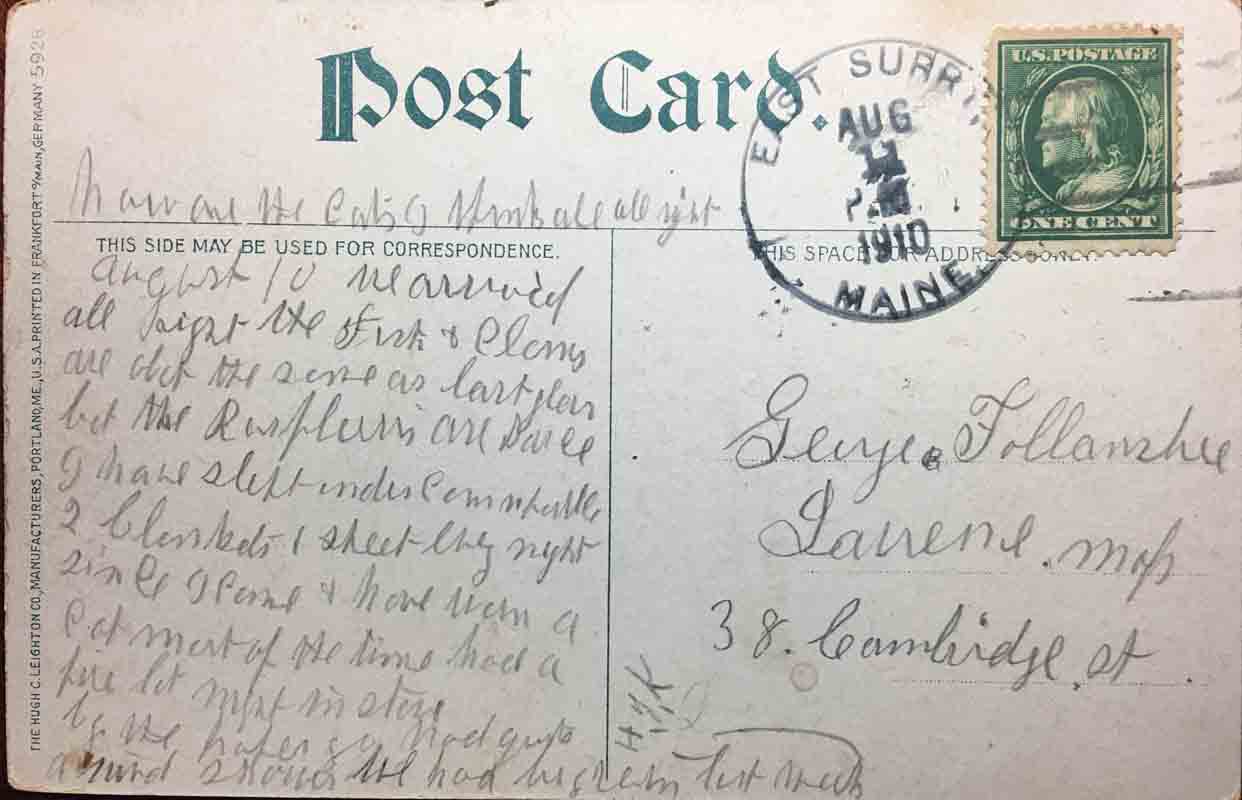 Post Card.
EAST SURRY,
AUG
11
1910
MAINE.
U.S. POSTAGE
ONE CENT
are the Cats I think all right
THIS SIDE MAY BE USED FOR CORRESPONDENCE.
THIS SPACE FOR ADDRESS ONLY.
August 10 we arrived
all right the Fish & Clams
are abot the same as last year
but the are
I have slept under
2 Blankets 1 sheet night
since I came & have worn a
Cot most of the time had a
fire night in stove
by the had
a we had last week
George Follanshee
Mass
38. Cambridge st.
H. F. K
THE HUGH C. LEIGHTON CO., MANUFACTURERS, PORTLAND, ME., U.S.A. PRINTED IN FRANKFORT o/MAIN, GERMANY 5928